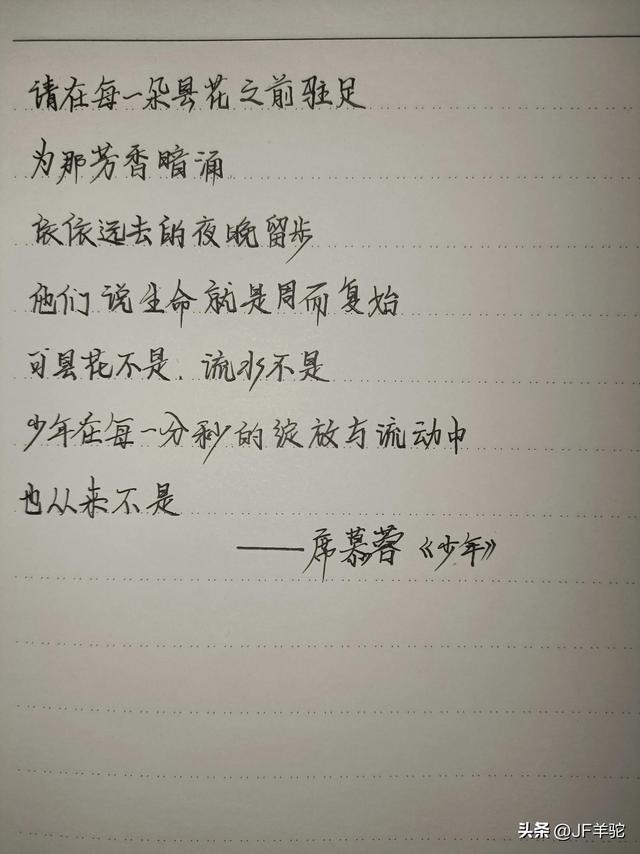 请在每一朵昙花之前驻足
为那芳香暗涌
依依远去的夜晚留步
他们说生命就是周而复始
可昙花不是.流水不是
少年在每一分秒的绽放与流动中
也从来不是
——席慕蓉《少年》
头条@JF羊驼